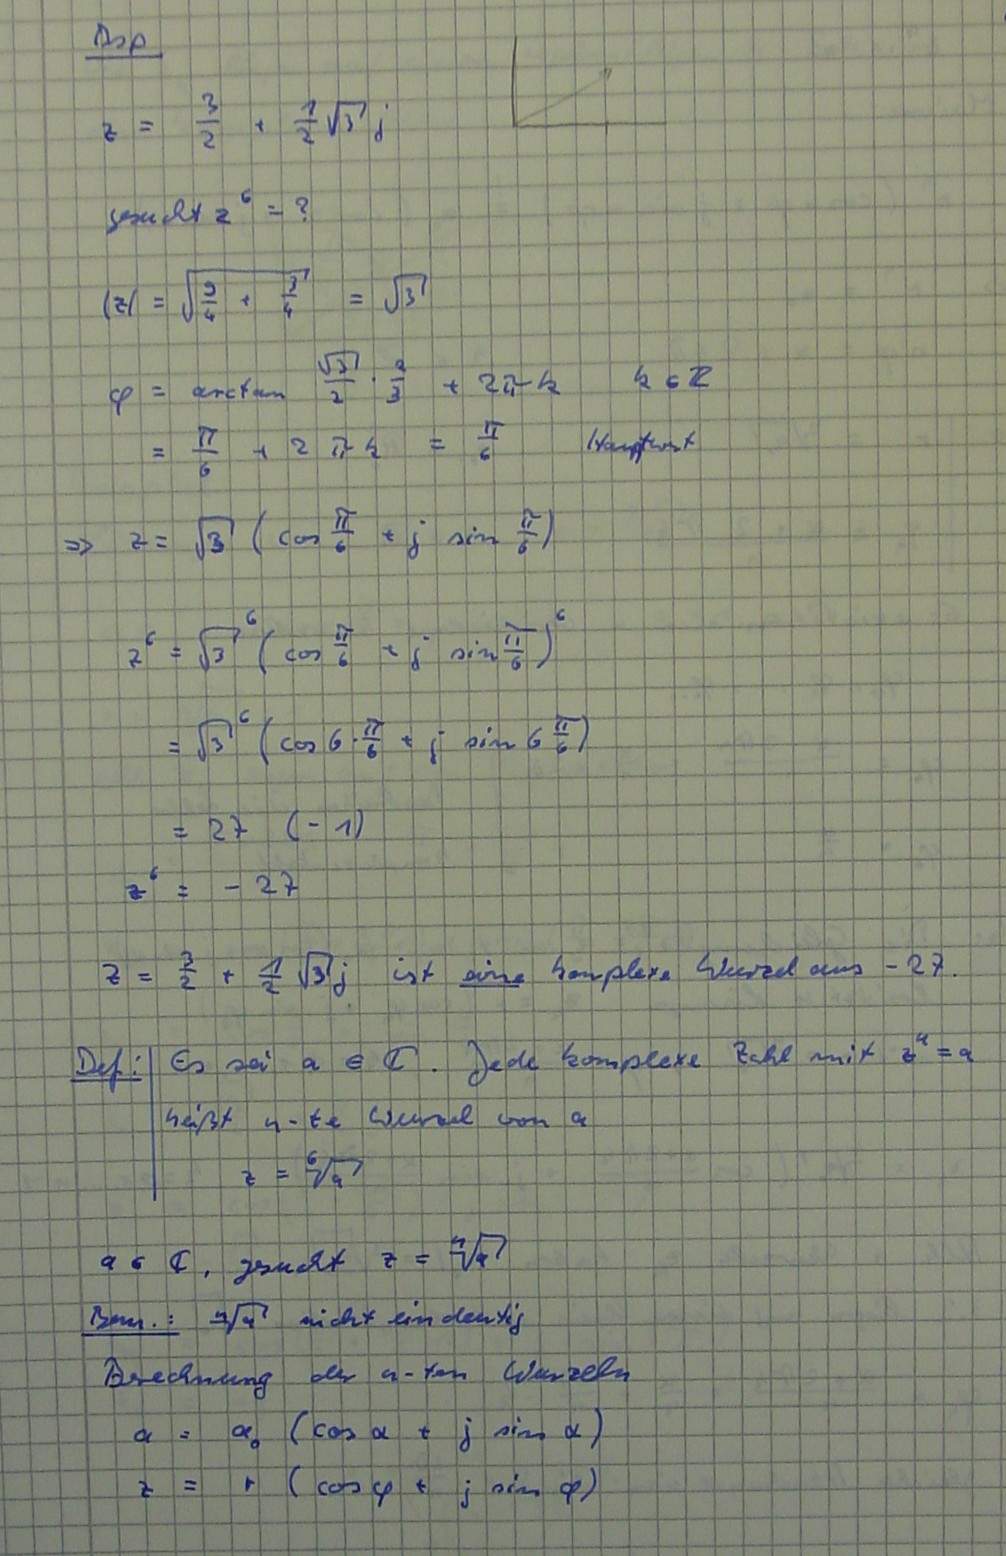 Bsp
z = 3/2 + 1/2 √3 j
gesucht z^6 = ?
|z| = √(9/4 + 3/4) = √3
φ = arctan √3/2 · 2/3 + 2πk k ∈ Z
= π/6 + 2πk = π/6 Hauptwert
=> z = √3 (cos π/6 + j sin π/6)
z^6 = √3^6 (cos π/6 + j sin π/6)^6
= √3^6 (cos 6 · π/6 + j sin 6 π/6)
= 27 (-1)
z^6 = -27
z = 3/2 + 1/2 √3 j ist eine komplexe Wurzel aus -27.
Def.: Es sei a ∈ ℂ. Jede komplexe Zahl mit z^n = a
heißt n-te Wurzel von a
z = ⁶√a
a ∈ ℂ, gesucht z = ⁿ√a
Bem.: ⁿ√a nicht eindeutig
Berechnung der n-ten Wurzeln
a = a₀ (cos α + j sin α)
z = r (cos φ + j sin φ)